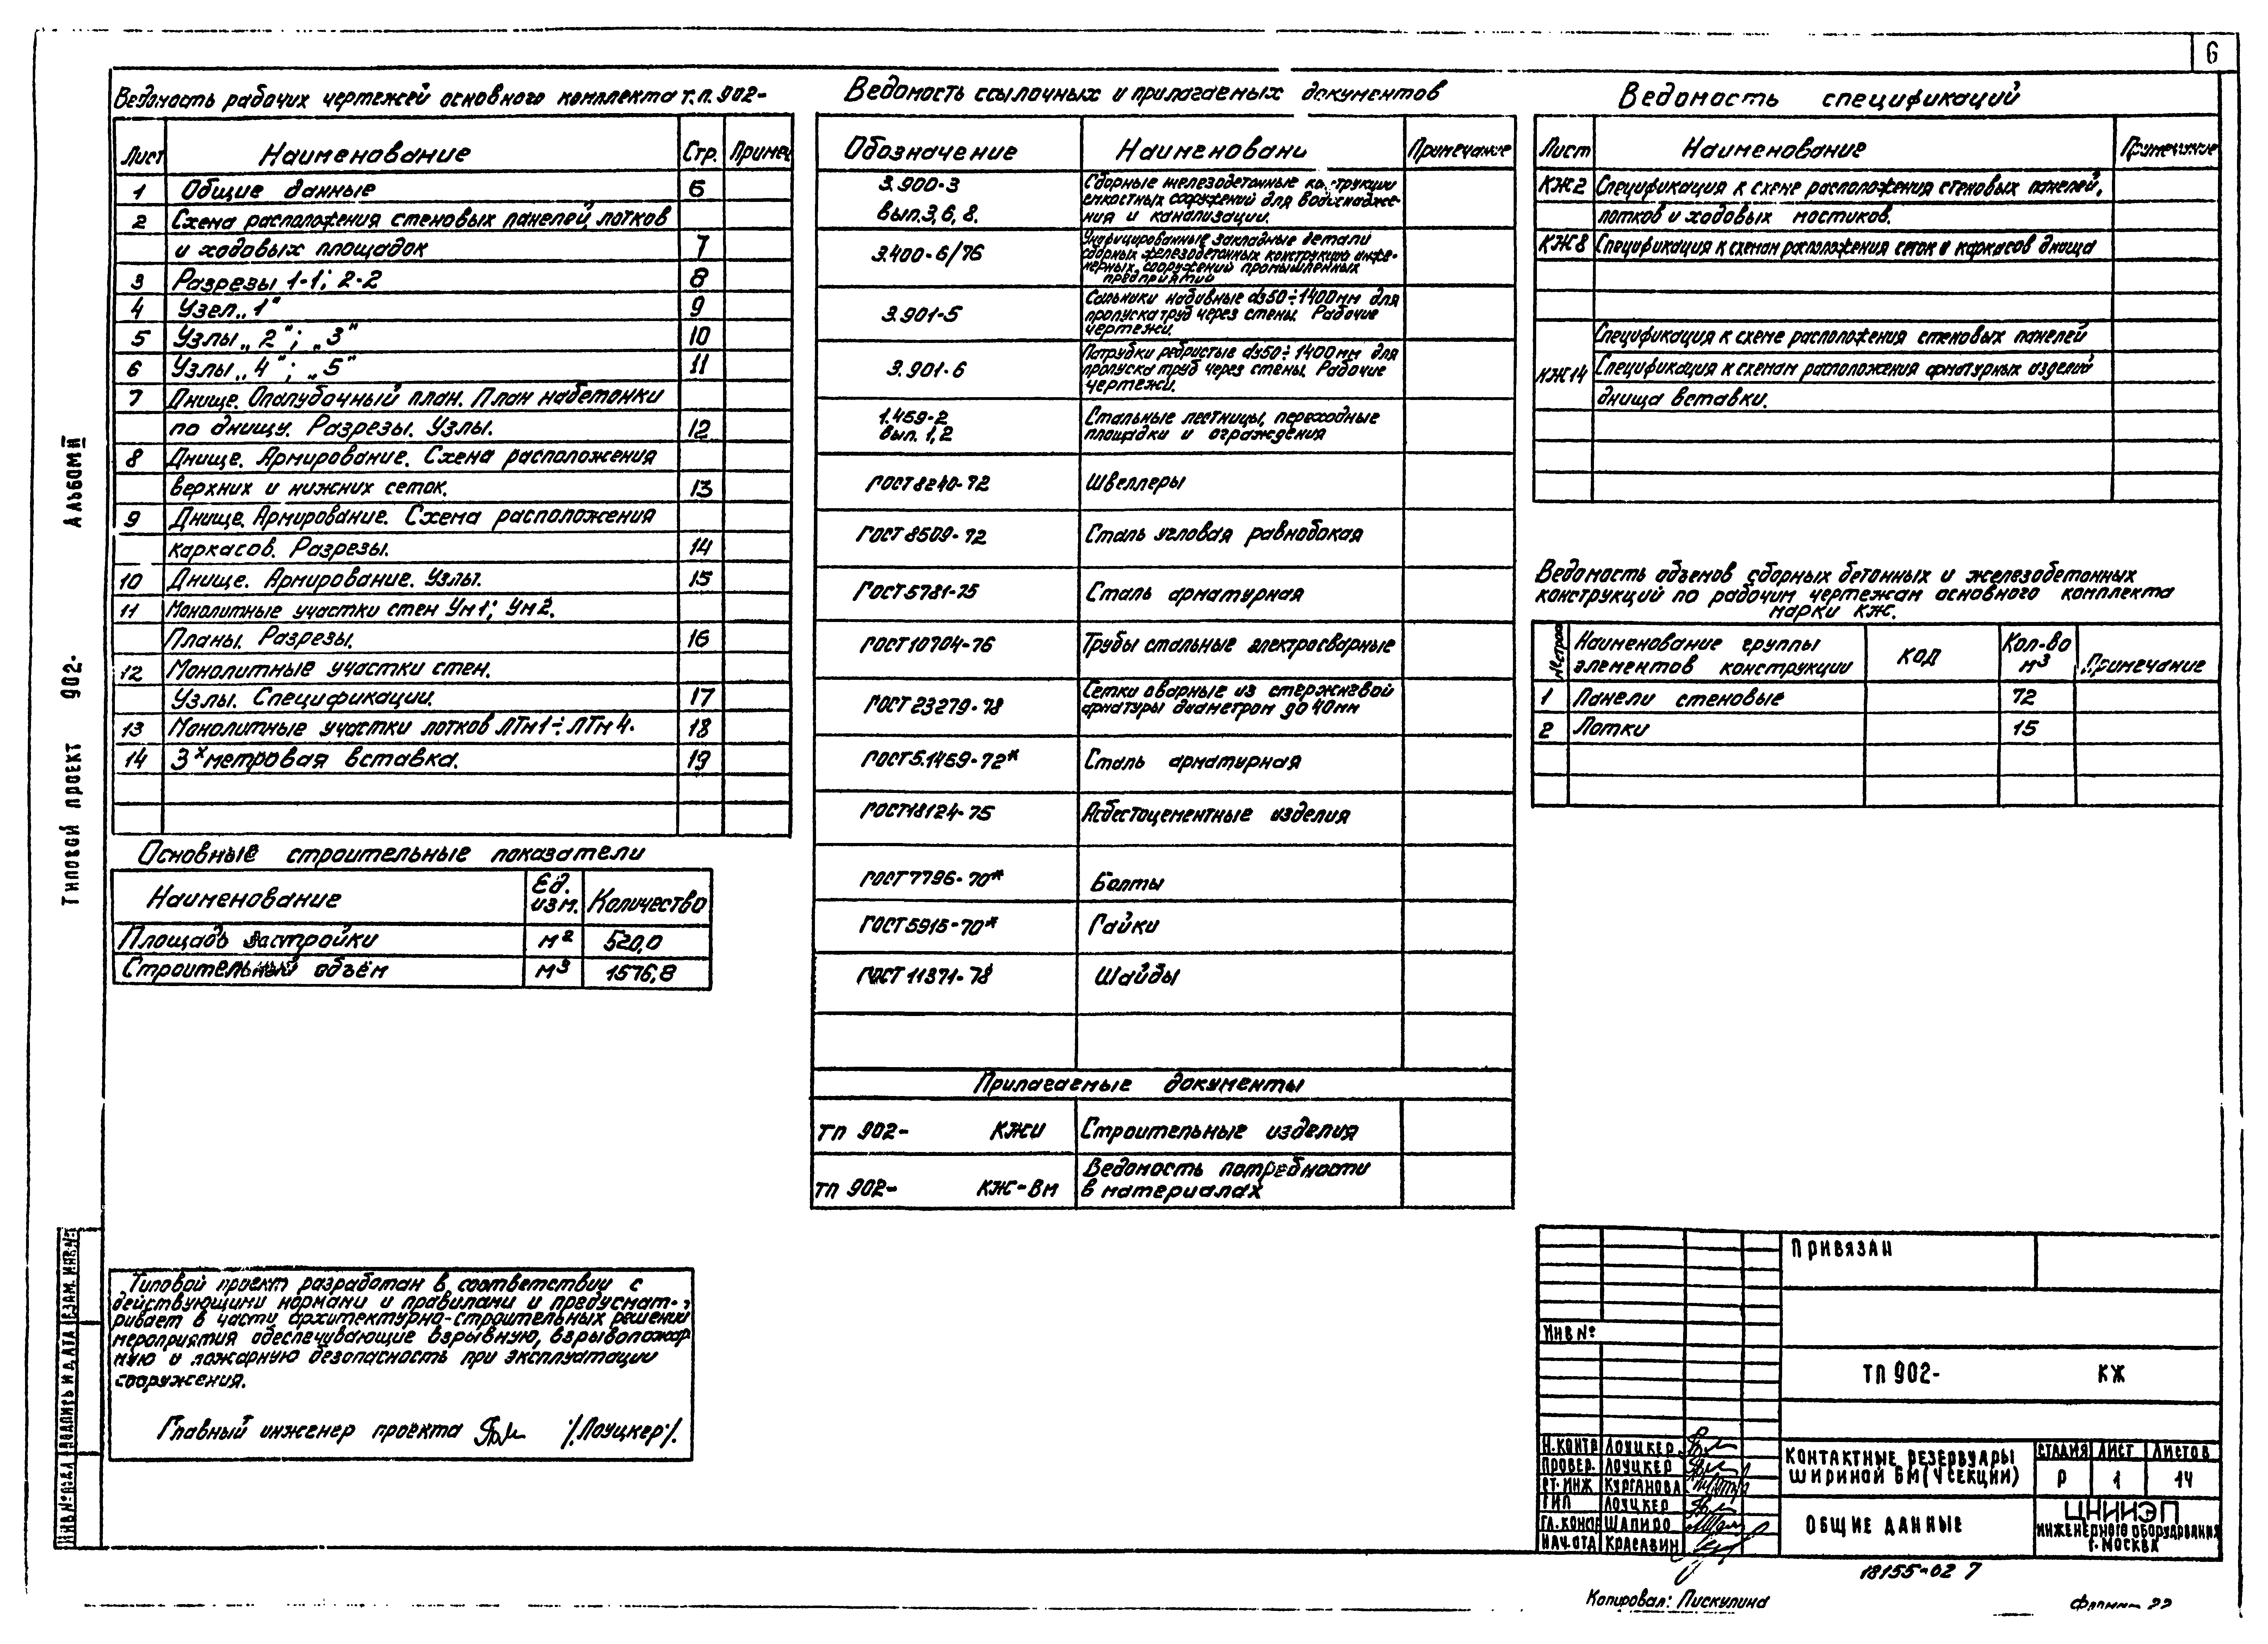 6
Ведомость рабочих чертежей основного комплекта т.п. 902-
Лист Наименование Стр. Примеч
1 Общие данные 6
2 Схема расположения стеновых панелей, лотков
и ходовых площадок 7
3 Разрезы 1-1; 2-2 8
4 Узел „1" 9
5 Узлы „2"; „3" 10
6 Узлы „4"; „5" 11
7 Днище. Опалубочный план. План набетонки
по днищу. Разрезы. Узлы. 12
8 Днище. Армирование. Схема расположения
верхних и нижних сеток. 13
9 Днище. Армирование. Схема расположения
каркасов. Разрезы. 14
10 Днище. Армирование. Узлы. 15
11 Монолитные участки стен Ум1; Ум2.
Планы. Разрезы. 16
12 Монолитные участки стен.
Узлы. Спецификации. 17
13 Монолитные участки лотков ЛТм1÷ЛТм4. 18
14 3х метровая вставка. 19
Основные строительные показатели
Наименование Ед. изм. Количество
Площадь застройки м² 520,0
Строительный объём м³ 1576,8
Типовой проект разработан в соответствии с
действующими нормами и правилами и предусмат-
ривает в части архитектурно-строительных решений
мероприятия обеспечивающие взрывную, взрывопожар
ную и пожарную безопасность при эксплуатации
сооружения.
Главный инженер проекта /Лоуцкер/.
Ведомость ссылочных и прилагаемых документов
Обозначение Наименовани Примечание
3.900-3 Сборные железобетонные конструкции
вып. 3, 6, 8. емкостных сооружений для водоснабже-
ния и канализации.
3.400-6/76 Унифицированные закладные детали
сборных железобетонных конструкций инже-
нерных сооружений промышленных
предприятий
3.901-5 Сальники набивные dу50÷1400мм для
пропуска труб через стены. Рабочие
чертежи.
3.901-6 Патрубки ребристые dу50÷1400мм для
пропуска труб через стены. Рабочие
чертежи.
1.459-2 Стальные лестницы, переходные
вып. 1, 2 площадки и ограждения
ГОСТ 8240-72 Швеллеры
ГОСТ 8509-72 Сталь угловая равнобокая
ГОСТ 5781-75 Сталь арматурная
ГОСТ 10704-76 Трубы стальные электросварные
ГОСТ 23279-78 Сетки сварные из стержневой
арматуры диаметром до 40мм
ГОСТ 5.1459-72* Сталь арматурная
ГОСТ 18124-75 Асбестоцементные изделия
ГОСТ 7796-70* Болты
ГОСТ 5915-70* Гайки
ГОСТ 11371-78 Шайбы
Прилагаемые документы
ТП 902- КЖИ Строительные изделия
ТП 902- КЖ-ВМ Ведомость потребности
в материалах
Ведомость спецификаций
Лист Наименование Примечание
КЖ2 Спецификация к схеме расположения стеновых панелей,
лотков и ходовых мостиков.
КЖ8 Спецификация к схемам расположения сеток и каркасов днища
Спецификация к схеме расположения стеновых панелей
КЖ14 Спецификация к схемам расположения арматурных изделий
днища вставки.
Ведомость объемов сборных бетонных и железобетонных
конструкций по рабочим чертежам основного комплекта
марки КЖ.
Наименование группы элементов конструкции КОД Кол-во м³ Примечание
1 Панели стеновые 72
2 Лотки 15
ПРИВЯЗАН
ИНВ №
ТП 902- КЖ
Н.КОНТР ЛОУЦКЕР
ПРОВЕР. ЛОУЦКЕР
РТ. ИНЖ КУРГАНОВА
ГИП ЛОУЦКЕР
ГЛ. КОНСТР ШАПИРО
НАЧ. ОТД КРАСАВИН
КОНТАКТНЫЕ РЕЗЕРВУАРЫ
ШИРИНОЙ 6М (4 СЕКЦИИ)
СТАДИЯ ЛИСТ ЛИСТОВ
Р 1 14
ОБЩИЕ ДАННЫЕ
ЦНИИЭП
ИНЖЕНЕРНОГО ОБОРУДОВАНИЯ
Г. МОСКВА
18155-02 7
Копировал: Пискулина
Формат 22
Типовой проект 902- Альбом II
ИНВ № ПОДЛ ПОДПИСЬ И ДАТА ВЗАМ. ИНВ №